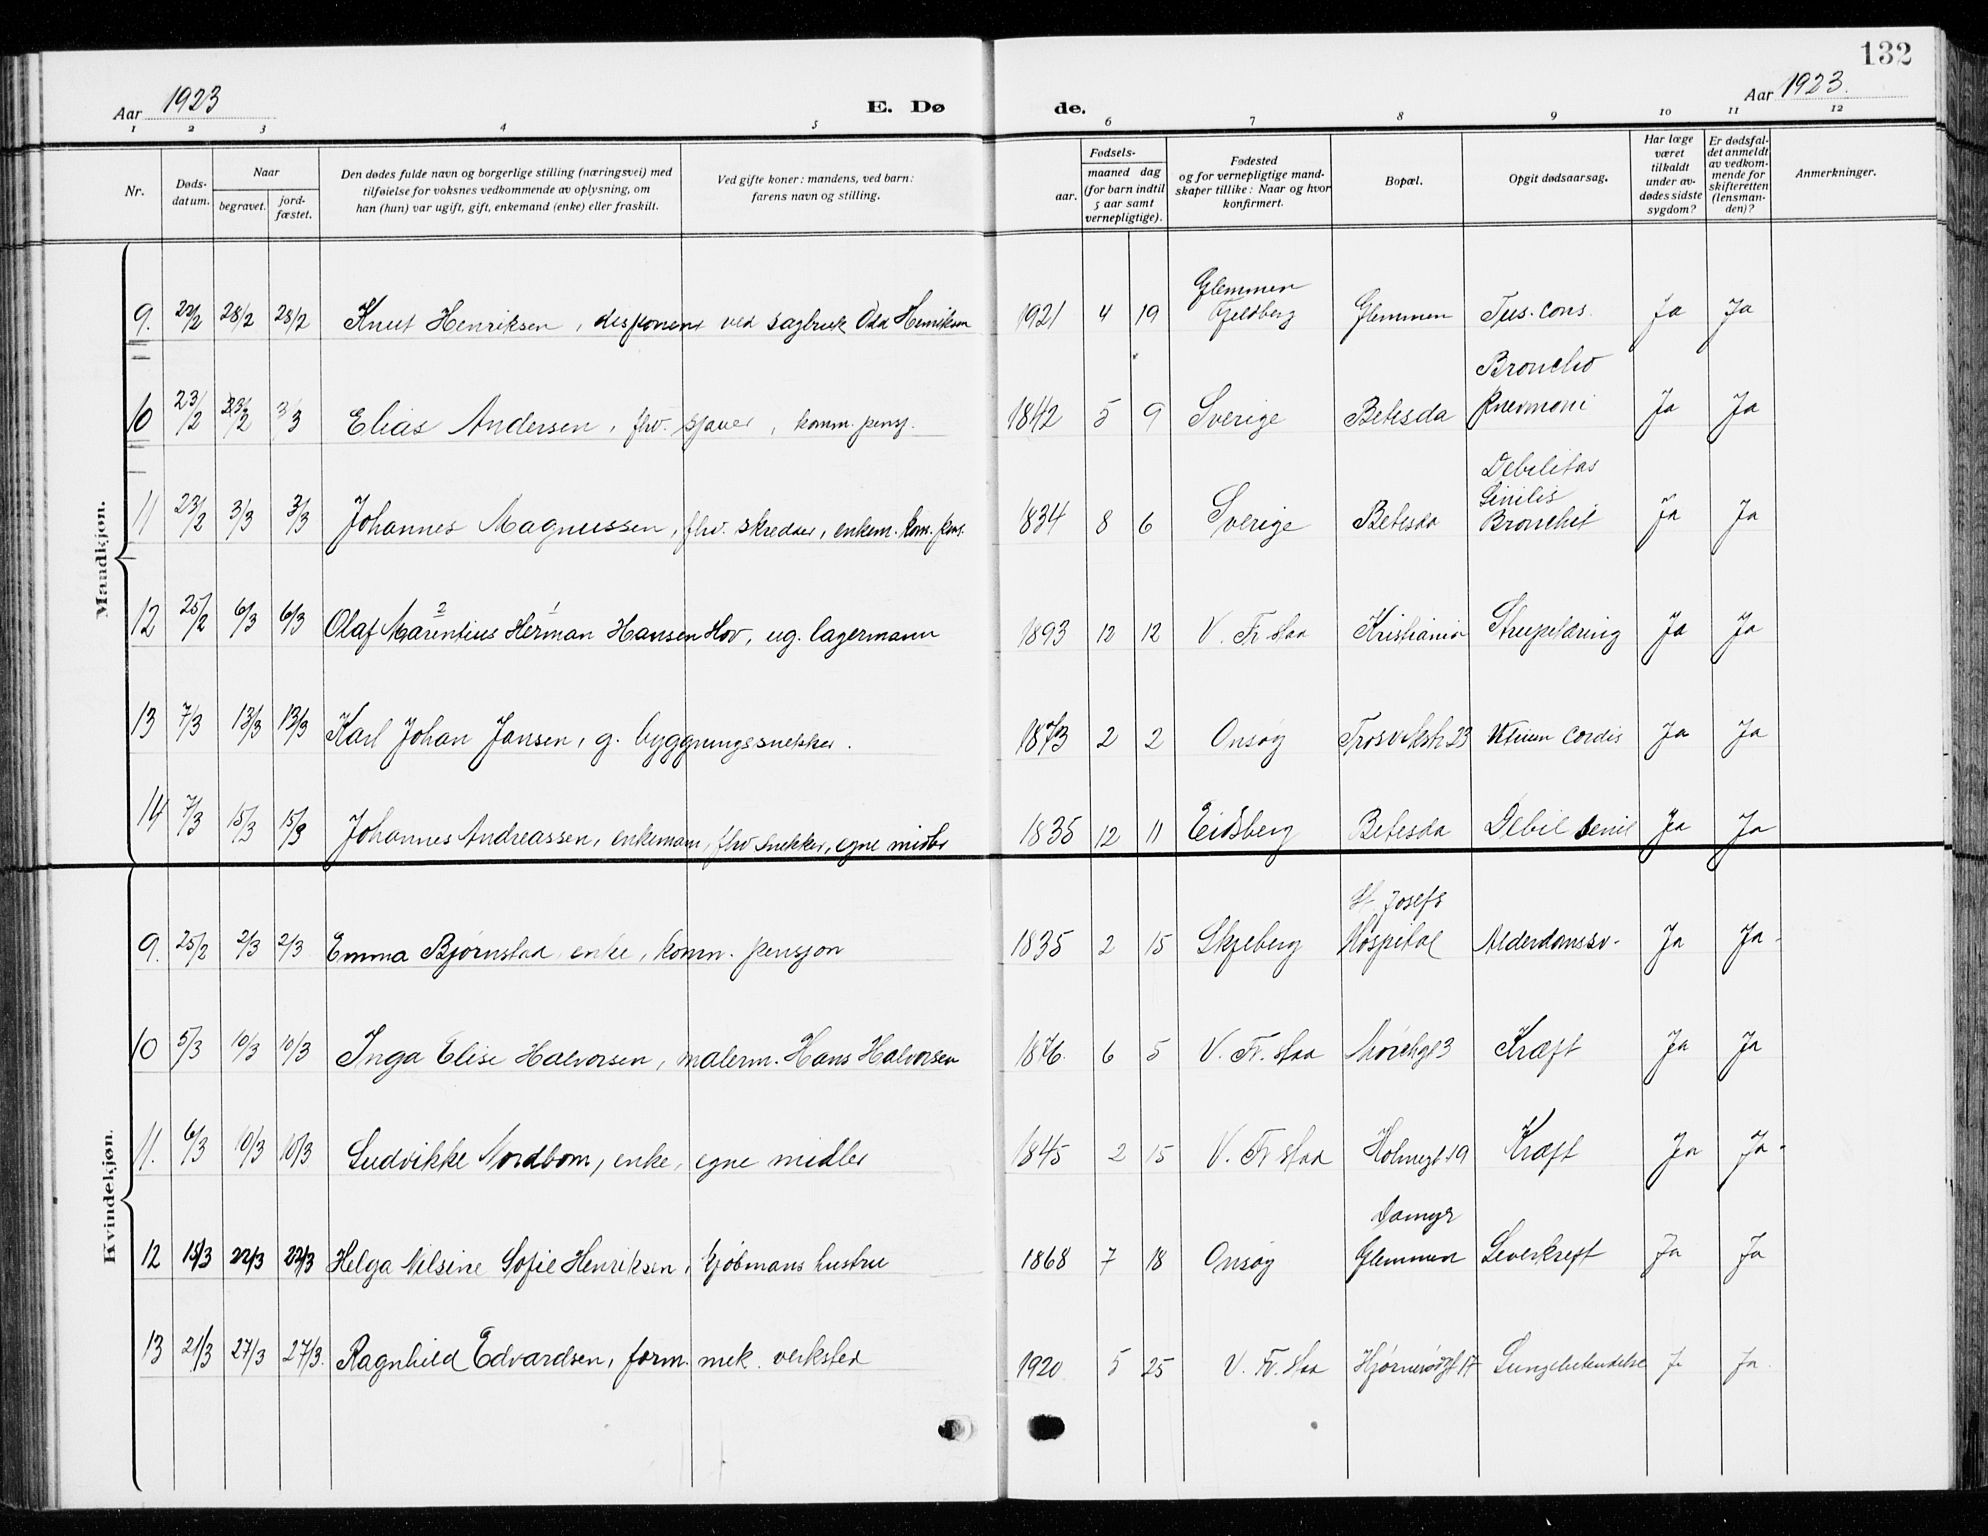 132
Aar 1923
E. Dø de.
Aar 1923.
1 2 3 4 5 6 7 8 9 10 11 12
Nr.
Døds-
datum.
Naar
begravet.
jord-
fæstet.
Den dødes fulde navn og borgerlige stilling (næringsvei) med
tilføielse for voksnes vedkommende av oplysning, om
han (hun) var ugift, gift, enkemand (enke) eller fraskilt.
Ved gifte koner: mandens, ved barn:
farens navn og stilling.
Fødsels-
aar.
maaned dag
(for barn indtil
5 aar samt
vernepligtige).
Fødested
og for vernepligtige mand-
skaper tillike: Naar og hvor
konfirmert.
Bopæl.
Opgit dødsaarsag.
Har læge
været
tilkaldt
under av-
dødes sidste
sygdom?
Er dødsfal-
det anmeldt
av vedkom-
mende for
skifteretten
(lensman-
den)?
Anmerkninger.
Mandkjøn.
Glemmen
9. 22/2 28/2 28/2 Knut Henriksen, disponent ved sagbruk Odd Henriksen 1921 4 19 Fjeldberg Glemmen Tus. cons. Ja Ja
Broncho
10 23/2 23/2 3/3 Elias Andersen, fhv. sjauer, komm. pensj. 1842 5 9 Sverige Betesda pnevmoni Ja Ja
Debilitas
Sinilis
11 23/2 3/3 3/3 Johannes Magnussen, fhv. skredder, enkem. kom. pens. 1834 8 6 Sverige Betesda Bronchit Ja Ja
2 1
12 25/2 6/3 6/3 Olaf Marentius Herman Hansen Hov, ug. lagermann 1893 12 12 V. Fr.stad Kristiania Ja Ja
13 7/3 13/3 13/3 Karl Johan Jansen, g. byggningssnekker. 1873 2 2 Onsøy Trosvikstr 23 Vitium cordis Ja Ja
14 7/3 15/3 15/3 Johannes Andreassen, enkemann, fhv snekker, egne midler 1835 12 11 Eidsberg Betesda Debil senil Ja Ja
Kvindekjøn.
St. Josefs
9. 25/2 2/3 2/3 Emma Bjørnstad, enke, komm. pensjon 1835 2 15 Skjeberg Hospital Alderdomssv- Ja Ja-
10 5/3 10/3 10/3 Inga Elise Halvorsen, malerm. Hans Halvorsen 1876. 6 5 V. Fr.stad Mørchgt 3 Kræft Ja Ja
11. 6/3 10/3 10/3 Ludvikke Nordbom, enke, egne midler 1845 2 15 V. Fr stad Holmegt 19 Kræft Ja Ja-
Damyr
12 15/3 22/3 22/3 Helga Nilsine Sofie Henriksen, kjøbmans hustru 1868 7 18 Onsøy Glemmen Leverkreft Ja Ja
13 21/3 27/3 27/3. Ragnhild Edvardsen, form. mek. verksted 1920 5 25 V. Fr.stad 17 Lungebetendelse Ja.